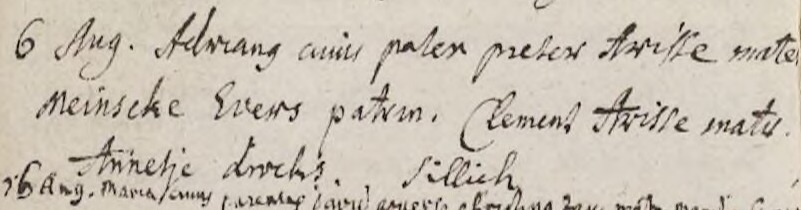 6 Aug. Adriang cuius pater preter Arisse mate
Meinscke Evers patrin. Clement Arisse matr.
Annetje drocks. Sillich
16 Aug. Maria cuius parentes